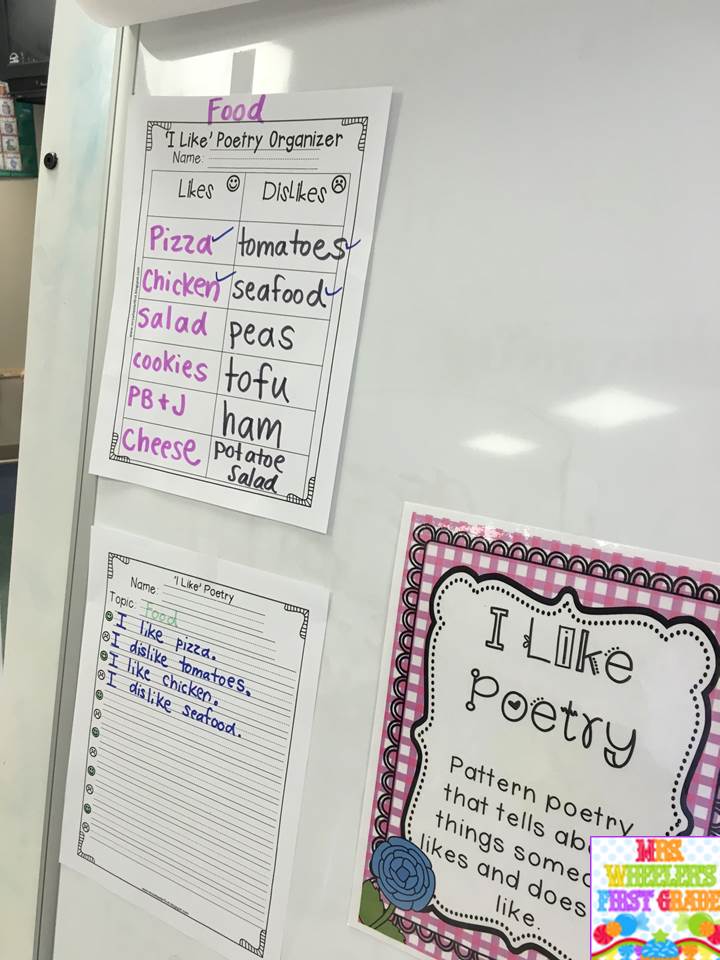 Food
'I Like' Poetry Organizer
Name:
Likes Dislikes
Pizza tomatoes
Chicken seafood
salad peas
cookies tofu
PB+J ham
Cheese potatoe salad
'I Like' Poetry
Name:
Topic: Food
I like pizza.
I dislike tomatoes.
I like chicken.
I dislike seafood.
I Like
Poetry
Pattern poetry
that tells
things
likes and does
like.
MRS.
WHEELER'S
FIRST GRADE